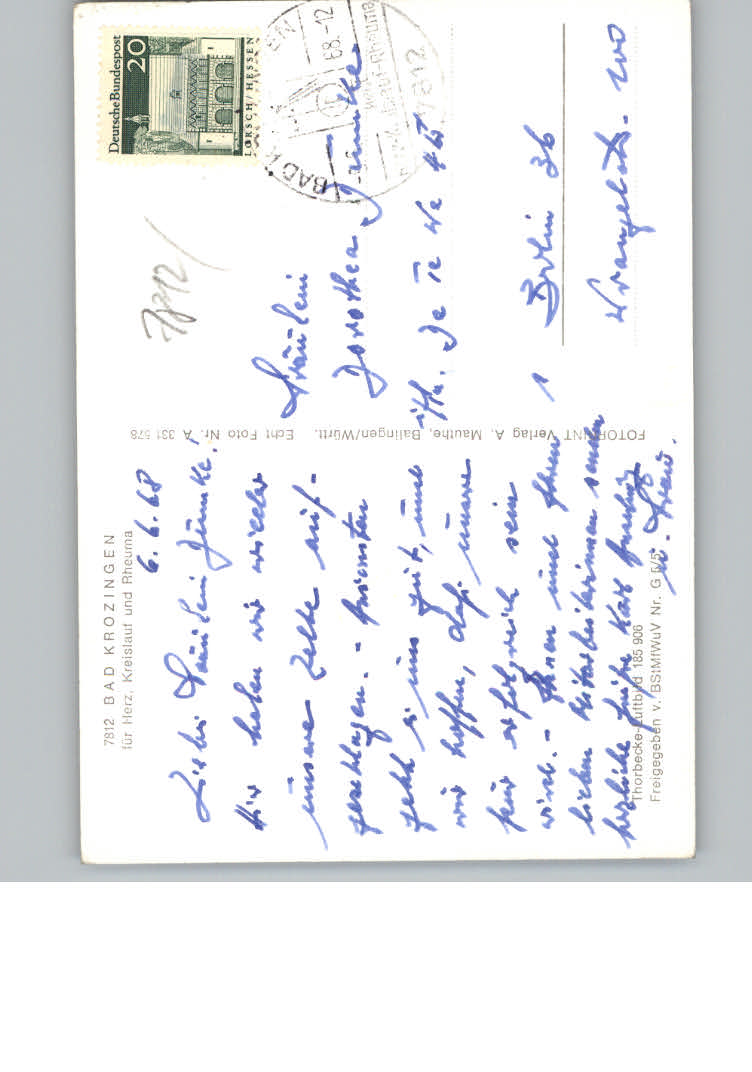 7812 BAD KROZINGEN
für Herz, Kreislauf und Rheuma
6. 6. 68
Liebes Fräulein Jümtke!
Hier haben wir wieder
unsere Zelte auf-
geschlagen. - Ansonsten
geht es uns gut, und
wir hoffen, daß unsere
Kur erfolgreich sein
wird. - Ihnen und Ihren
lieben Mitarbeiterinnen senden
herzliche Grüße
u. Frau.
Thorbecke-Luftbild 185 906
Freigegeben v. BStMfWuV Nr. G 5/5
FOTOPRINT Verlag A. Mauthe, Balingen/Württ. Echt Foto Nr. A 331 578
Deutsche Bundespost
20
LORSCH/HESSEN
BAD
68.-12
7812
Fräulein
Dorothea Jümtke
1 Berlin 36
Wrangelstr. 100